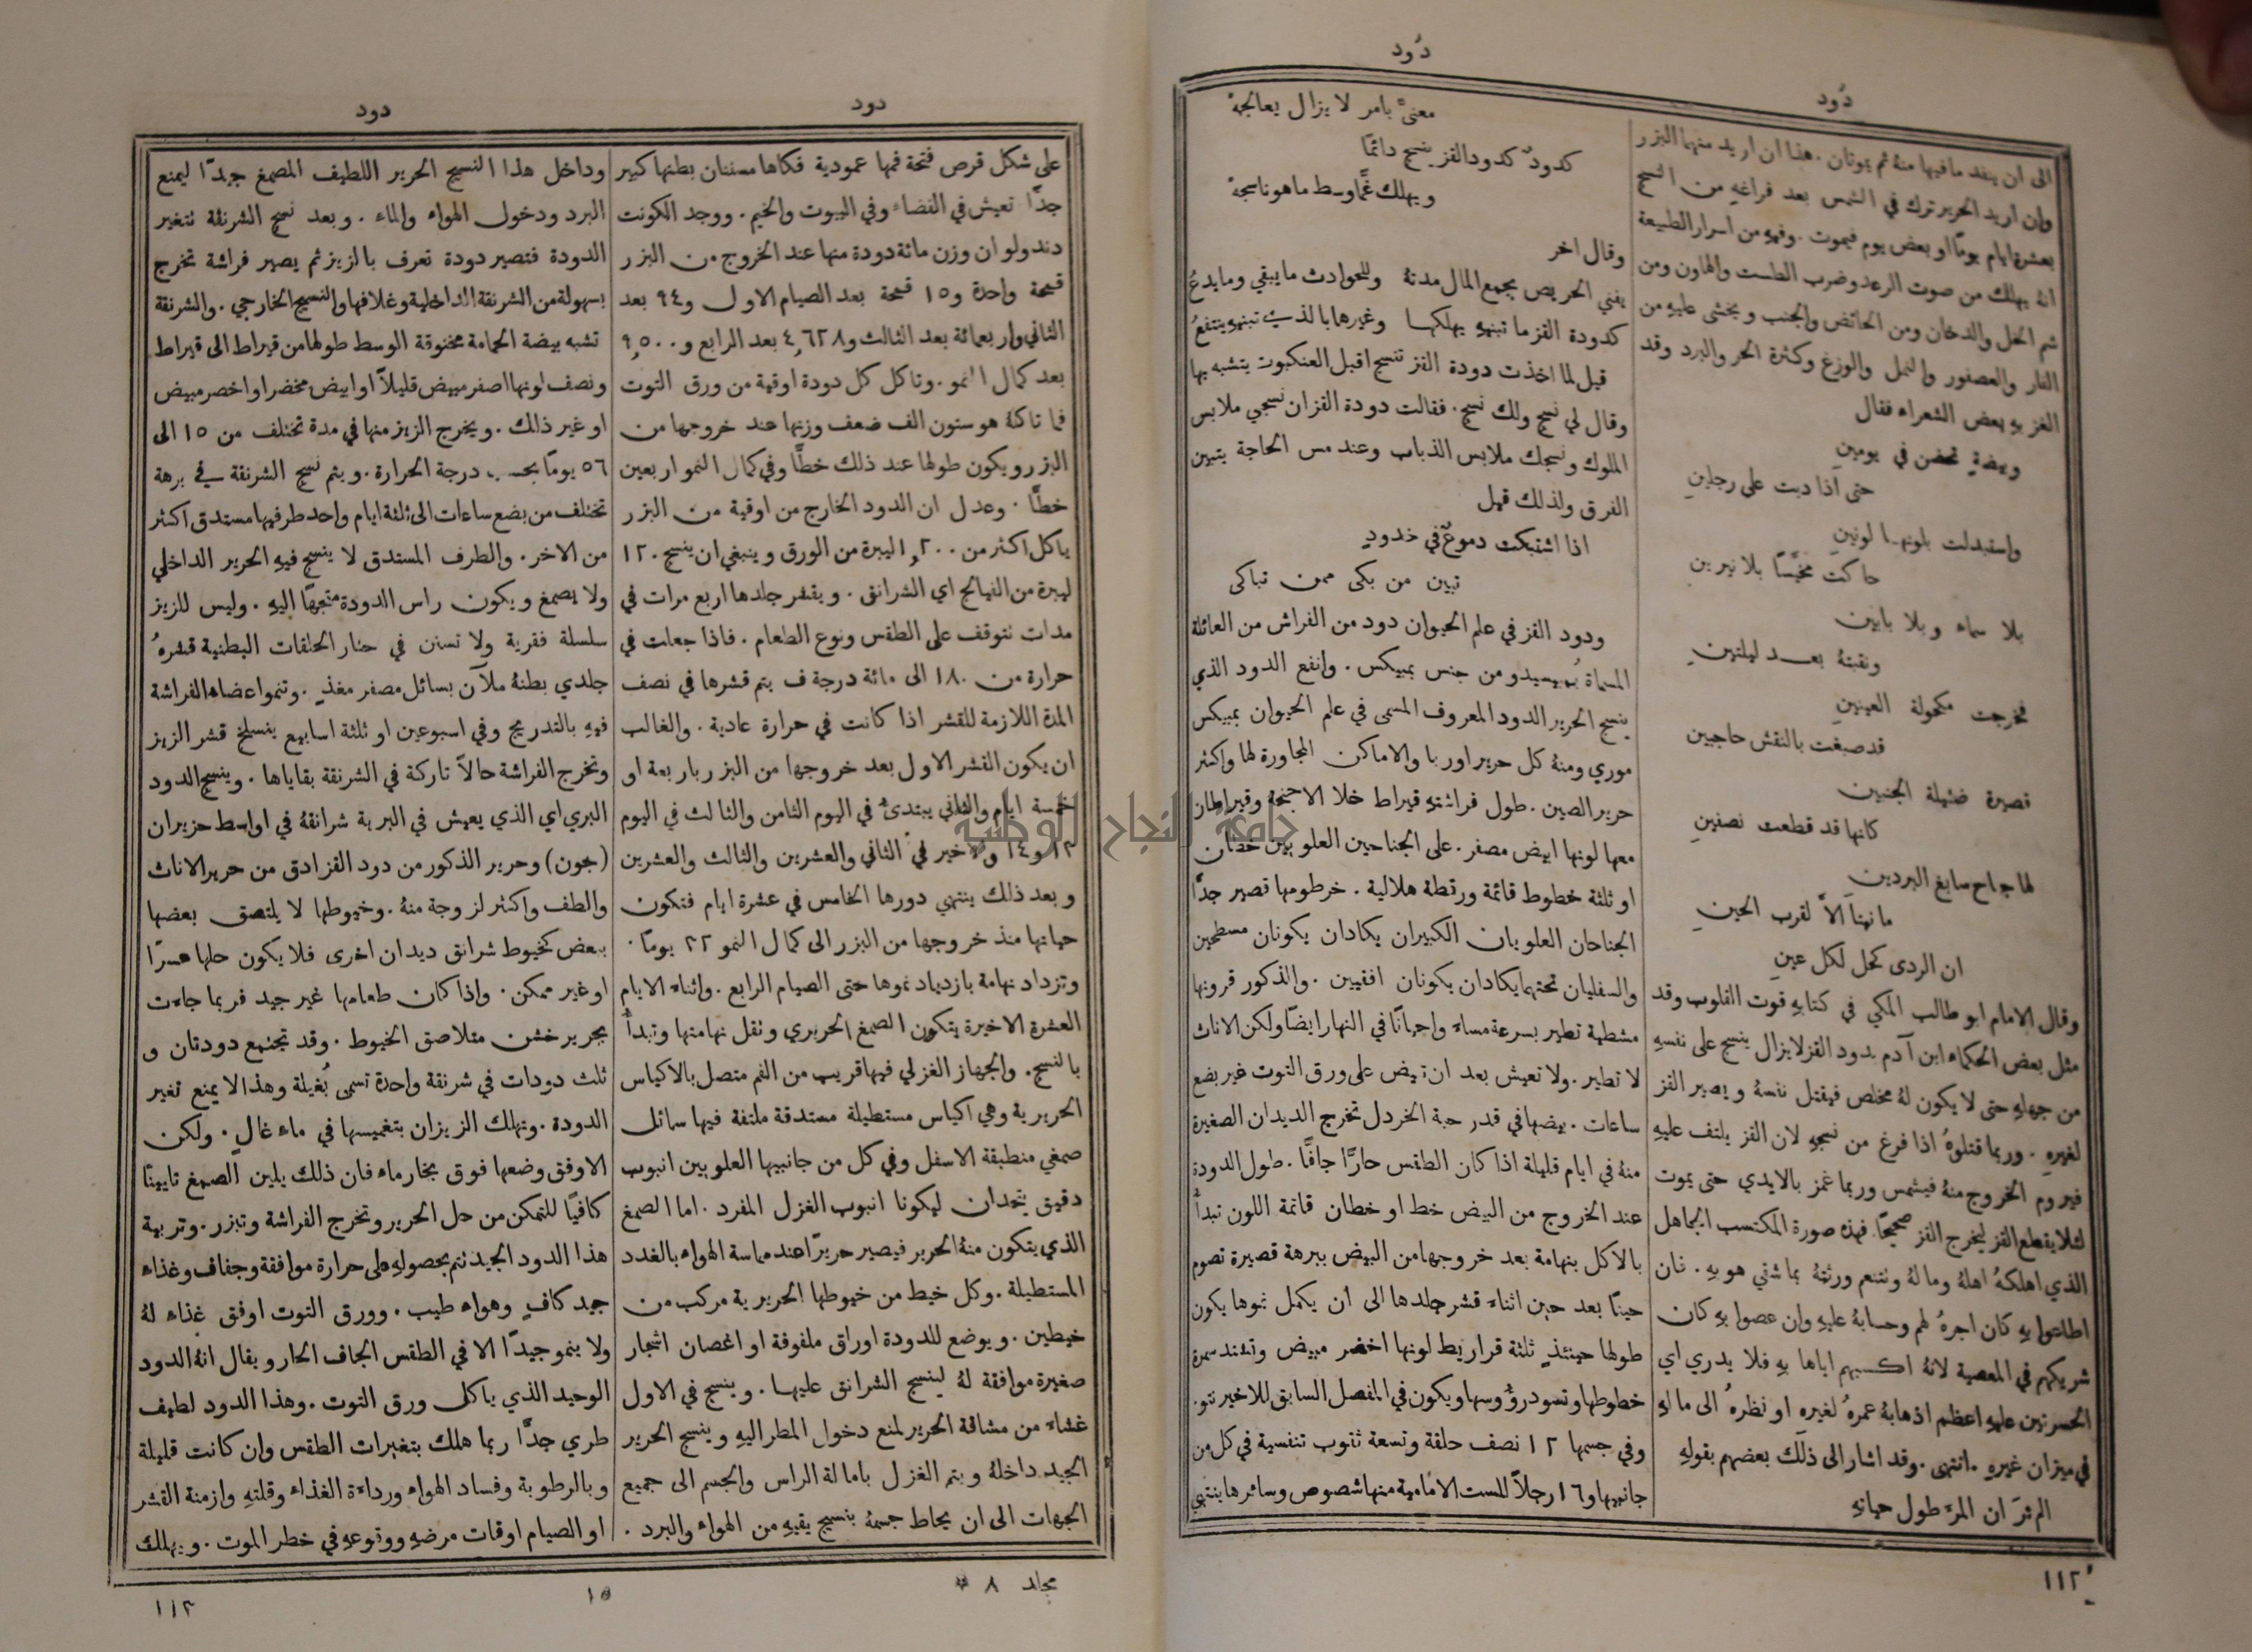 دُود
دُود
الى ان ينفد ما فيها منهُ ثم يموتان . هذا ان اريد منهما البزر
وان اريد الحرير ترك في الشمس بعد فراغهِ من النسج
بعشرة ايام يومًا او بعض يوم فيموت . وفيهِ من اسرار الطبيعة
انهُ يهلك من صوت الرعد وضرب الطست والهاون ومن
شم الخل والدخان ومن الحائض والجنب ويخشى عليهِ من
الفار والعصفور والنمل والوزغ وكثرة الحر والبرد وقد
الغز بهِ بعض الشعراء فقال
وبيضةٍ تحضن في يومينِ
حتى اذا دبت على رجلينِ
واستبدلت بلونهـا لونينِ
حاكت مخيَّسًا بلا نيرينِ
بلا سماء وبلا بابينِ
ونقبتهُ بعـــد ليلتينِ
فخرجت مكحولة العينينِ
قد صبغت بالنقش حاجبينِ
قصيرة ضئيلة الجنبينِ
كانها قد قطعت نصفينِ
لها جناح سابغ البردينِ
ما نبتا الاَّ لقرب الحينِ
ان الردى كحل لكل عينِ
وقال الامام ابو طالب المكي في كتابهِ قوت القلوب وقد
مثل بعض الحكماء ابن آدم بدود القز لا يزال ينسج على نفسهِ
من جهلهِ حتى لا يكون لهُ مخلص فيقتل نفسهُ ويصير القز
لغيرهِ . وربما قتلوهُ اذا فرغ من نسجهِ لان القز يلتف عليهِ
فيروم الخروج منهُ فيشمس وربما غمز بالايدي حتى يموت
لئلا يقطع القز ليخرج القز صحيحًا فهذه صورة المكتسب الجاهل
الذي اهلكهُ اهلهُ ومالهُ وتنعم ورثتهُ بما شقي هو بهِ . فان
اطاعوا بهِ كان اجرهُ لهم وحسابهُ عليهِ وان عصوا بهِ كان
شريكهم في المعصية لانهُ اكسبهم اياها بهِ فلا يدري اي
الحسرتين عليهِ اعظم اذهابهُ عمرهُ لغيرهِ او نظرهُ الى مالهِ
في ميزان غيرهِ . انتهى . وقد اشار الى ذلك بعضهم بقولهِ
الم ترَ ان المرء طول حياتهِ
معنىً بامر لا يزال يعالجهْ
كدودٌ كدود القز ينسج دائمًا
ويهلك غمًّا وسط ما هو ناسجهْ
وقال اخر
يفني الحريص بجمع المال مدتهُ وللحوادث ما يبقي وما يدعُ
كدودة القز ما تبنيهِ يهلكهـا وغيرها بالذي تبنيهِ ينتفعُ
قيل لما اخذت دودة القز تنسج اقبل العنكبوت يتشبه بها
وقال لي نسج ولك نسج . فقالت دودة القز ان نسجي ملابس
الملوك ونسجك ملابس الذباب وعند مس الحاجة يتبين
الفرق ولذلك قيل
اذا اشتبكت دموعٌ في خدودٍ
تبين من بكى ممن تباكى
ودود القز في علم الحيوان دود من الفراش من العائلة
المسماة بمبيسيدو من جنس بمبيكس . وانفع الدود الذي
ينسج الحرير الدود المعروف المسمى في علم الحيوان بمبيكس
موري ومنهُ كل حرير اوربا والاماكن المجاورة لها واكثر
حرير الصين . طول فراشتهِ قيراط خلا الاجنحة وقيراطان
معها لونها ابيض مصفر . على الجناحين العلويين خطان
او ثلثة خطوط قائمة ورقطة هلالية . خرطومها قصير جدًّا
الجناحان العلويان الكبيران يكادان يكونان مسطحين
والسفليان تحتهما يكادان يكونان افقيين . والذكور قرونها
مشطية تطير بسرعة مساء واحيانًا في النهار ايضًا ولكن الاناث
لا تطير . ولا تعيش بعد ان تبيض على ورق التوت غير بضع
ساعات . بيضها في قدر حبة الخردل تخرج الديدان الصغيرة
منهُ في ايام قليلة اذا كان الطقس حارًّا جافًّا . طول الدودة
عند الخروج من البيض خط او خطان قاتمة اللون تبدأُ
بالاكل بنهامة بعد خروجها من البيض ببرهة قصيرة تصوم
حينًا بعد حين اثناء قشر جلدها الى أن يكمل نموها يكون
طولها حينئذٍ ثلثة قراريط لونها اخضر مبيض وتشتد سمرة
خطوطها وتسود رؤُوسها ويكون في المفصل السابق للاخير نتو .
وفي جسمها ١٢ نصف حلقة وتسعة ثقوب تنفسية في كل من
جانبيها و١٦ رجلاً للست الامامية منها شصوص وسائرها ينتهي
١١٢
دود
دود
على شكل قرص فتحة فمها عمودية فكاها مسننان بطنها كبير
جدًّا تعيش في الفضاء وفي البيوت والخيم . ووجد الكونت
دندولو ان وزن مائة دودة منها عند الخروج من البزر
قمحة واحدة و١٥ قمحة بعد الصيام الاول و٩٤ بعد
الثاني واربعمائة بعد الثالث و٤٬٦٢٨ بعد الرابع و٩٬٥٠٠
بعد كمال النمو . وتاكل كل دودة اوقية من ورق التوت
فما تاكلهُ هو ستون الف ضعف وزنها عند خروجها من
البزر ويكون طولها عند ذلك خطًّا وفي كمال النمو اربعين
خطًّا . وعدل ان الدود الخارج من اوقية من البزر
ياكل اكثر من ١٬٢٠٠ ليبرة من الورق وينبغي ان ينسج ١٢٠
ليبرة من الفيالج اي الشرانق . ويقشر جلدها اربع مرات في
مدات تتوقف على الطقس ونوع الطعام . فاذا جعلت في
حرارة من ٨٠ الى مائة درجة ف يتم قشرها في نصف
المدة اللازمة للقشر اذا كانت في حرارة عادية . والغالب
ان يكون القشر الاول بعد خروجها من البزر باربعة او
خمسة ايام والثاني يبتدئ في اليوم الثامن والثالث في اليوم
١٣ و١٤ والاخير في الثاني والعشرين والثالث والعشرين
وبعد ذلك ينتهي دورها الخامس في عشرة ايام فتكون
حياتها منذ خروجها من البزر الى كمال النمو ٣٢ يومًا .
وتزداد نهامة بازدياد نموها حتى الصيام الرابع . واثناء الايام
العشرة الاخيرة يتكون الصمغ الحريري وتقل نهامتها وتبدأُ
بالنسج . والجهاز الغزلي فيها قريب من الفم متصل بالاكياس
الحريرية وهي اكياس مستطيلة مستدقة ملتفة فيها سائل
صمغي منطبقة الاسفل وفي كل من جانبيها العلويين انبوب
دقيق يتحدان ليكونا انبوب الغزل المفرد . اما الصمغ
الذي يتكون منهُ الحرير فيصير حريرًا عند مماسة الهواء بالغدد
المستطيلة . وكل خيط من خيوطها الحريرية مركب من
خيطين . ويوضع للدودة اوراق ملفوفة او اغصان اشجار
صغيرة موافقة لهُ لينسج الشرانق عليهـا . وينسج في الاول
غشاء من مشاقة الحرير لمنع دخول المطر اليهِ وينسج الحرير
الجيد داخلهُ ويتم الغزل بامالة الراس والجسم الى جميع
الجهات الى ان يحاط جسمهُ بنسيج يقيهِ من الهواء والبرد .
وداخل هذا النسيج الحرير اللطيف المصمغ جيدًا ليمنع
البرد ودخول الهواء والماء . وبعد نسج الشرنقة تتغير
الدودة فتصير دودة تعرف بالزيز ثم يصير فراشة تخرج
بسهولة من الشرنقة الداخلية وغلافها والنسيج الخارجي . والشرنقة
تشبه بيضة الحمامة مخنوقة الوسط طولها من قيراط الى قيراط
ونصف لونها اصفر مبيض قليلاً او ابيض مخضر او اخضر مبيض
او غير ذلك . ويخرج الزيز منها في مدة تختلف من ١٥ الى
٥٦ يومًا بحسب درجة الحرارة . ويتم نسج الشرنقة في برهة
تختلف من بضع ساعات الى ثلثة ايام واحد طرفيها مستدق اكثر
من الاخر . والطرف المستدق لا ينسج فيهِ الحرير الداخلي
ولا يصمغ ويكون راس الدودة متجهًا اليهِ . وليس للزيز
سلسلة فقرية ولا تسنن في حتار الحلقات البطنية قشرهُ
جلدي بطنهُ ملآن بسائل مصفر مغذٍ . وتنمو اعضاء الفراشة
فيهِ بالتدريج وفي اسبوعين او ثلثة اسابيع ينسلخ قشر الزيز
وتخرج الفراشة حالاً تاركة في الشرنقة بقاياها . وينسج الدود
البري اي الذي يعيش في البرية شرانقهُ في اواسط حزيران
(جون) وحرير الذكور من دود القز ادق من حرير الاناث
والطف واكثر لزوجة منهُ . وخيوطها لا يلتصق بعضها
ببعض كخيوط شرانق ديدان اخرى فلا يكون حلها عسرًا
او غير ممكن . واذا كان طعامها غير جيد فربما جاءت
بحرير خشن متلاصق الخيوط . وقد تجتمع دودتان و
ثلث دودات في شرنقة واحدة تسمى بُغيلة وهذا لا يمنع تغير
الدودة . وتهلك الزيزان بتغميسها في ماء غالٍ . ولكن
الاوفق وضعها فوق بخار ماء فان ذلك يلين الصمغ تليينًا
كافيًا للتمكن من حل الحرير وتخرج الفراشة وتبزر . وتربية
هذا الدود الجيد تتم بحصولهِ على حرارة موافقة وجفاف وغذاء
جيد كافٍ وهواء طيب . وورق التوت اوفق غذاء لهُ
ولا ينمو جيدًا الا في الطقس الجاف الحار ويقال انهُ الدود
الوحيد الذي ياكل ورق التوت . وهذا الدود لطيف
طري جدًّا ربما هلك بتغيرات الطقس وان كانت قليلة
وبالرطوبة وفساد الهواء ورداءة الغذاء وقلتهِ وازمنة القشر
او الصيام اوقات مرضهِ ووقوعهِ في خطر الموت . ويهلك
مجلد ٨ *
١٥
١١٣
جامعة النجاح الوطنية